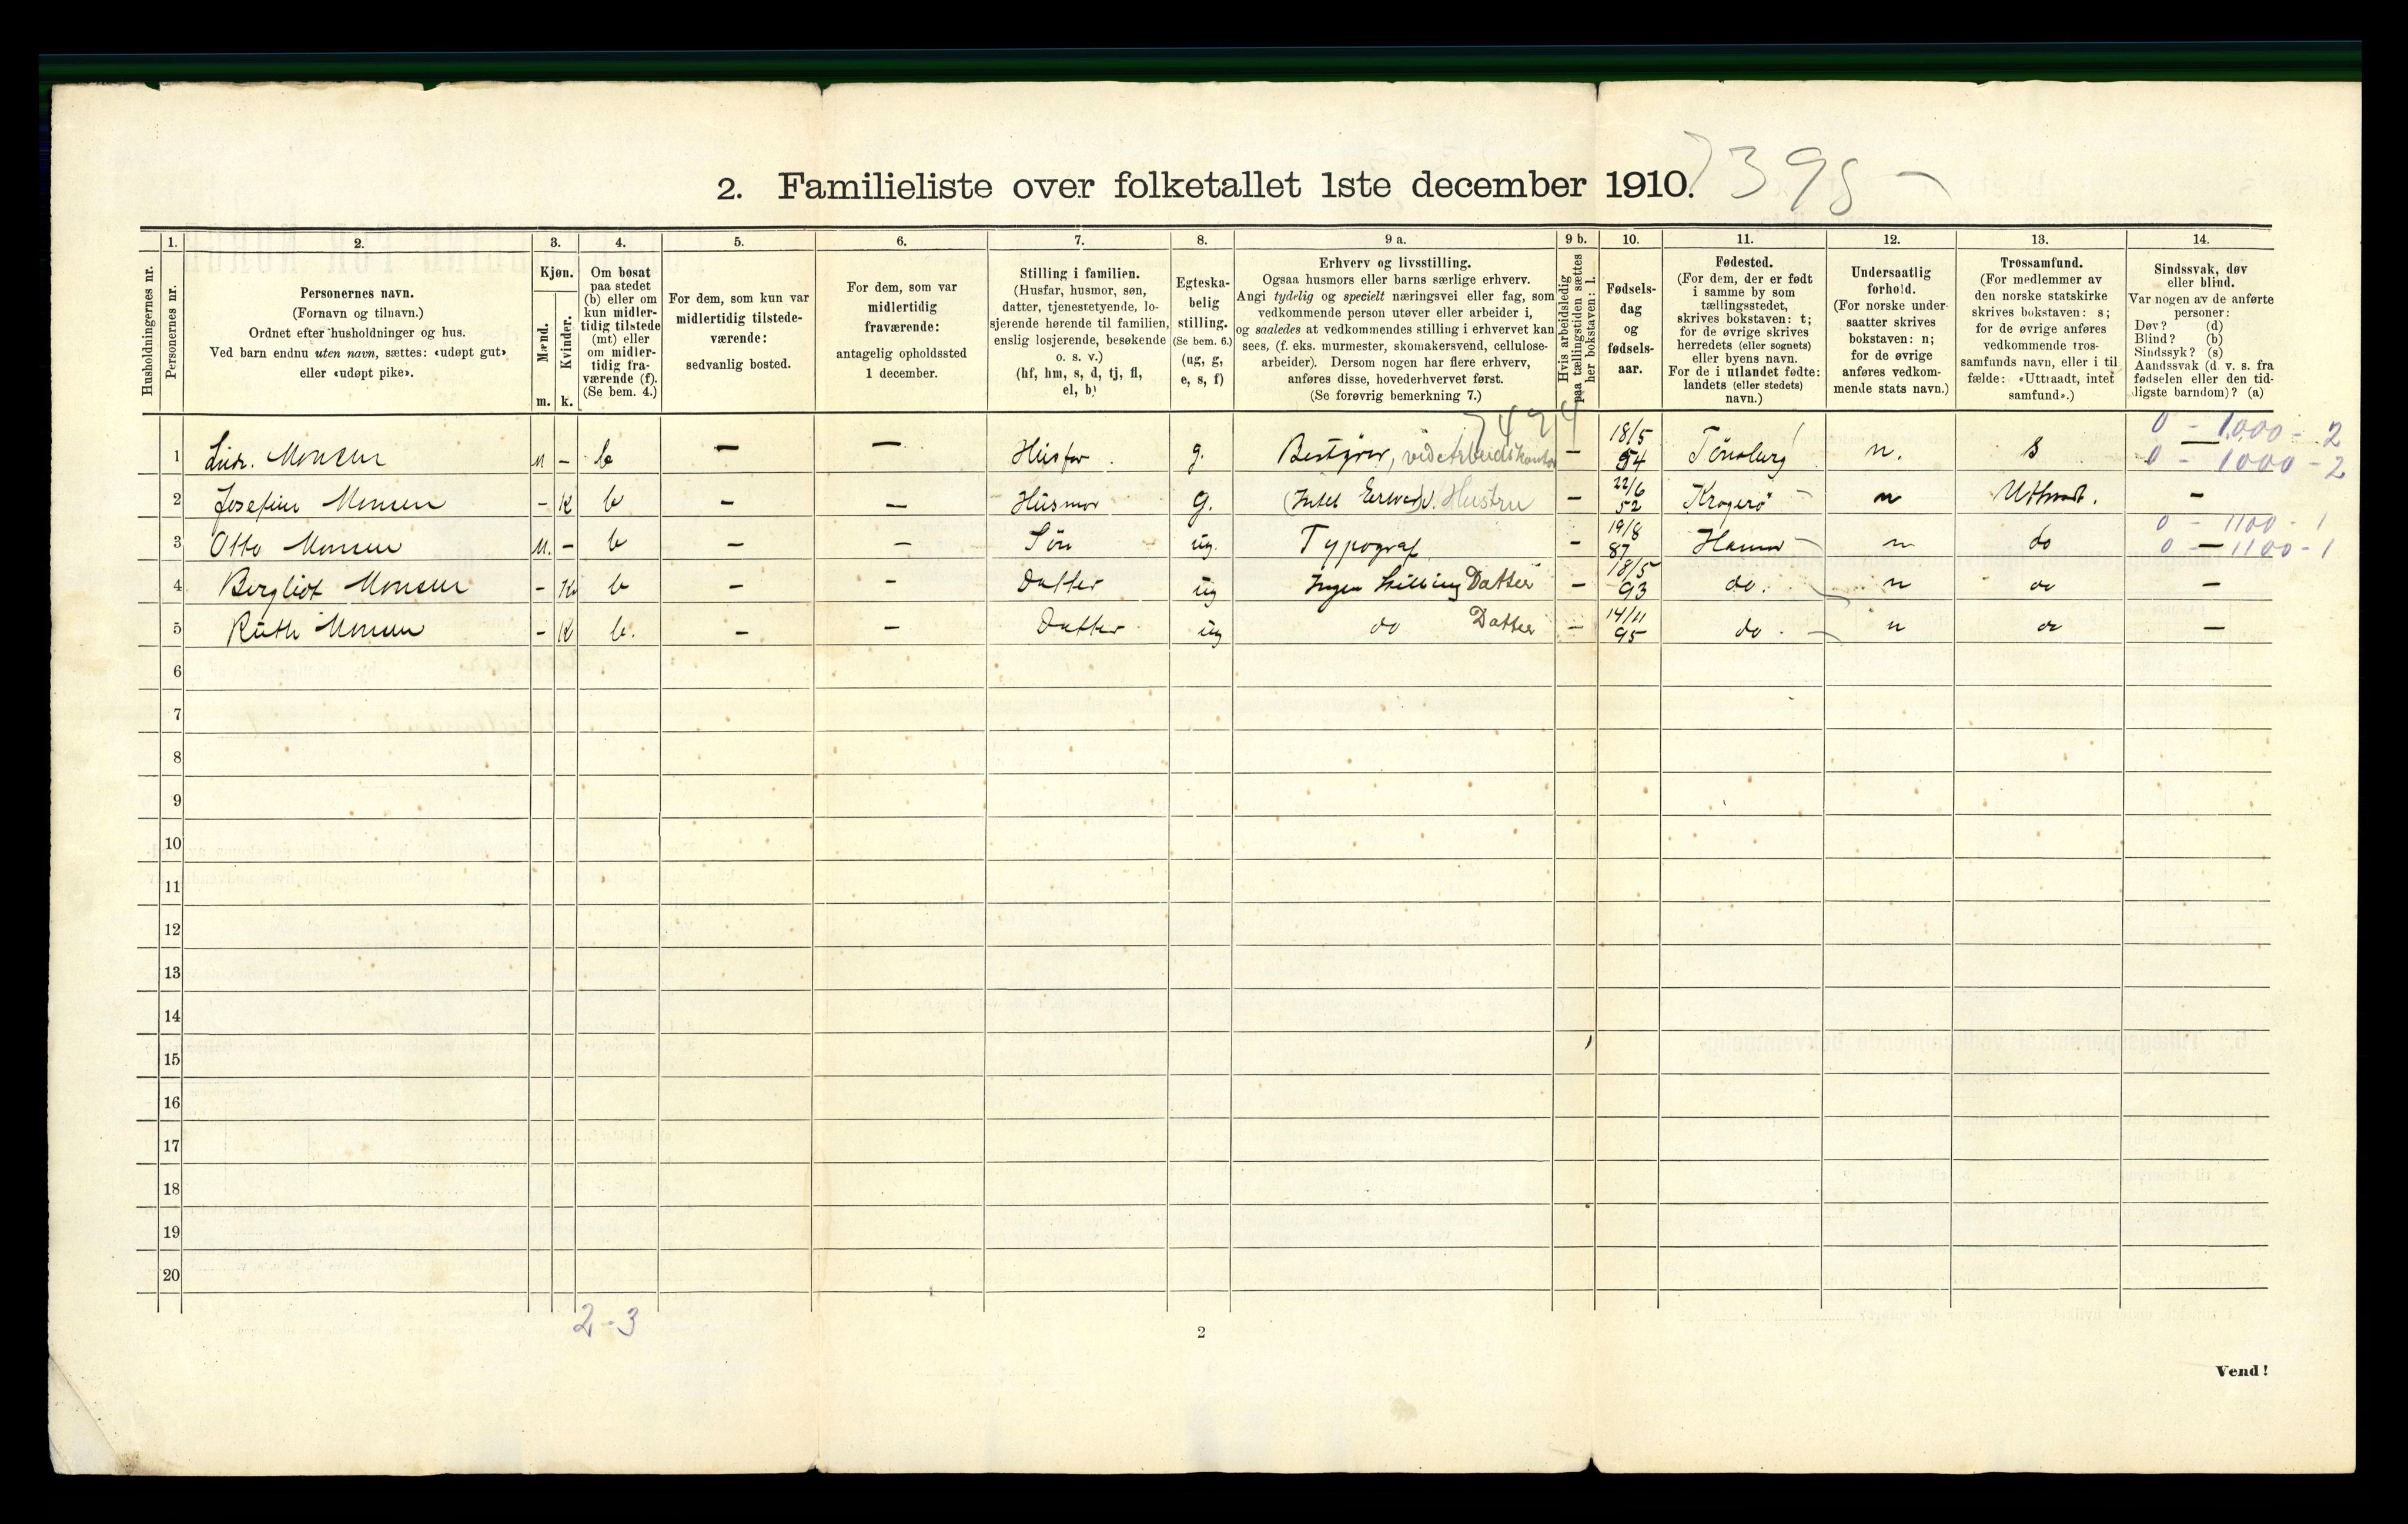 2. Familieliste over folketallet 1ste december 1910.
Husholdningernes nr.
1. Personernes nr.
2. Personernes navn.
(Fornavn og tilnavn.)
Ordnet efter husholdninger og hus.
Ved barn endnu uten navn, sættes: «udøpt gut»
eller «udøpt pike».
3. Kjøn.
Mænd. m.
Kvinder. k.
4. Om bosat
paa stedet
(b) eller om
kun midler-
tidig tilstede
(mt) eller
om midler-
tidig fra-
værende (f).
(Se bem. 4.)
5. For dem, som kun var
midlertidig tilstede-
værende:
sedvanlig bosted.
6. For dem, som var
midlertidig
fraværende:
antagelig opholdssted
1 december.
7. Stilling i familien.
(Husfar, husmor, søn,
datter, tjenestetyende, lo-
sjerende hørende til familien,
enslig losjerende, besøkende
o. s. v.)
(hf, hm, s, d, tj, fl,
el, b)
8. Egteska-
belig
stilling.
(Se bem. 6.)
(ug, g,
e, s, f)
9 a. Erhverv og livsstilling.
Ogsaa husmors eller barns særlige erhverv.
Angi tydelig og specielt næringsvei eller fag, som
vedkommende person utøver eller arbeider i,
og saaledes at vedkommendes stilling i erhvervet kan
sees, (f. eks. murmester, skomakersvend, cellulose-
arbeider). Dersom nogen har flere erhverv,
anføres disse, hovederhvervet først.
(Se forøvrig bemerkning 7.)
9 b. Hvis arbeidsledig
paa tællingstiden sættes
her bokstaven: l.
10. Fødsels-
dag
og
fødsels-
aar.
11. Fødested.
(For dem, der er født
i samme by som
tællingsstedet,
skrives bokstaven: t;
for de øvrige skrives
herredets (eller sognets)
eller byens navn.
For de i utlandet fødte:
landets (eller stedets)
navn.)
12. Undersaatlig
forhold.
(For norske under-
saatter skrives
bokstaven: n;
for de øvrige
anføres vedkom-
mende stats navn.)
13. Trossamfund.
(For medlemmer av
den norske statskirke
skrives bokstaven: s;
for de øvrige anføres
vedkommende tros-
samfunds navn, eller i til
fælde: «Uttraadt, intet
samfund».)
14. Sindssvak, døv
eller blind.
Var nogen av de anførte
personer:
Døv? (d)
Blind? (b)
Sindssyk? (s)
Aandssvak (d. v. s. fra
fødselen eller den tid-
ligste barndom)? (a)
0 - 1000 - 2
1 Monsen M - b — — Husfar g. Bestyrer, ved Arbeidskontor — 18/5 54 Tönsberg n. s —
0 - 1000 - 2
2 Josefine Monsen - K b — — Husmor g. (Intet Erhverv). Hustru — 22/6 52 Kragerö n Uttraadt. —
0 - 1100 - 1
3 Otto Monsen M. - b — — Sön ug. Typograf - 19/8 87 Hamar n do —
0 - 1100 - 1
4 Bergliot Monsen - K b — — Datter ug Ingen Stilling Datter — 18/5 93 do. n do —
5 Ruth Monsen - K b. — — Datter ug do Datter — 14/11 95 do. n do —
6
7
8
9
10
11
12
13
14
15
16
17
18
19
20
2-3
2
Vend!